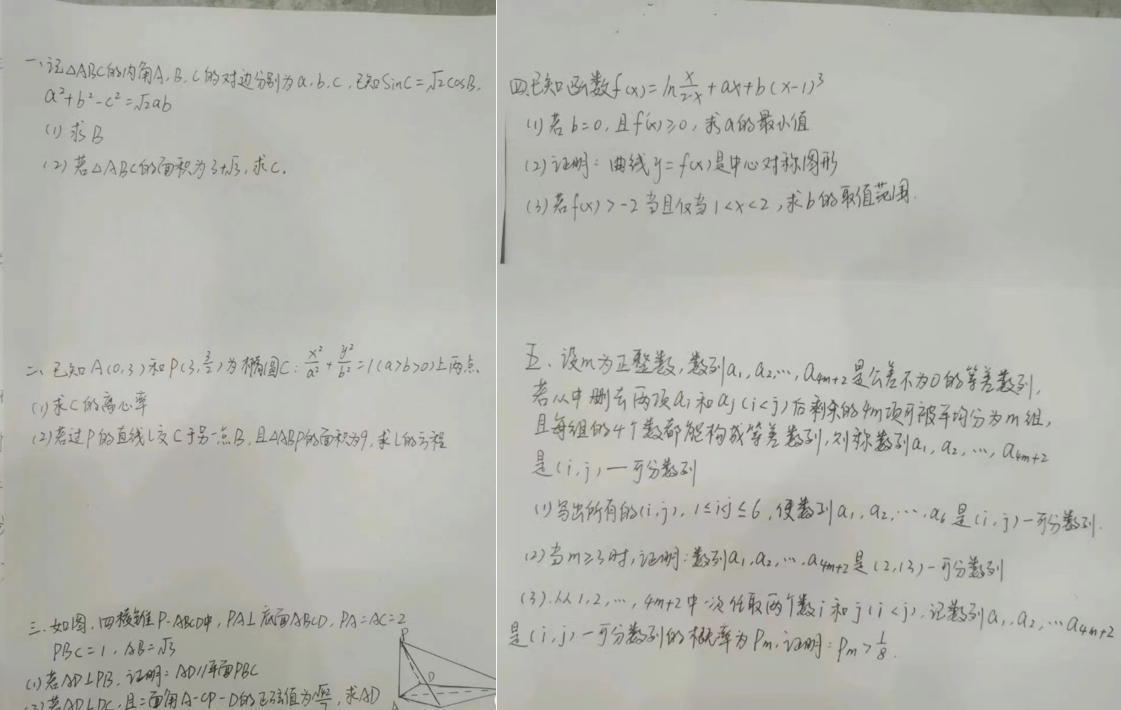 一、记△ABC的内角A、B、C的对边分别为a、b、c，已知sinC=√2cosB,
a²+b²-c²=√2ab
(1) 求B
(2) 若△ABC的面积为3+√3，求C.
二、已知A(0,3)和P(3,3/2)为椭圆C: x²/a²+y²/b²=1(a>b>0)上两点
(1)求C的离心率
(2)若过P的直线L交C于另一点B，且△ABP的面积为9，求L的方程
三、如图，四棱锥P-ABCD中，PA⊥底面ABCD，PA=AC=2
PBC=1，AB=√3
(1)若AD⊥PB，证明：AD//平面PBC
(2)若AD⊥DC，且二面角A-CP-D的正弦值为√42/7，求AD
P
D
A
四、已知函数f(x)=ln x/2-x+ax+b(x-1)³
(1)若b=0，且f'(x)≥0，求a的最小值
(2)证明：曲线y=f(x)是中心对称图形
(3)若f(x)>-2当且仅当1<x<2，求b的取值范围.
五、设m为正整数，数列a₁，a₂，…，a₄ₘ₊₂是公差不为0的等差数列，
若从中删去两项aᵢ和aⱼ(i<j)后剩余的4m项可被平均分为m组，
且每组的4个数都能构成等差数列，则称数列a₁，a₂，…，a₄ₘ₊₂
是(i,j)一可分数列
(1)写出所有的(i,j)，1≤i<j≤6，使数列a₁，a₂，…，a₆是(i,j)一可分数列.
(2)当m≥3时，证明：数列a₁，a₂，…，a₄ₘ₊₂是(2,13)一可分数列
(3).从1,2,…，4m+2中一次任取两个数i和j(i<j)，记数列a₁，a₂，…a₄ₘ₊₂
是(i,j)一可分数列的概率为Pₘ，证明：Pₘ>1/8.